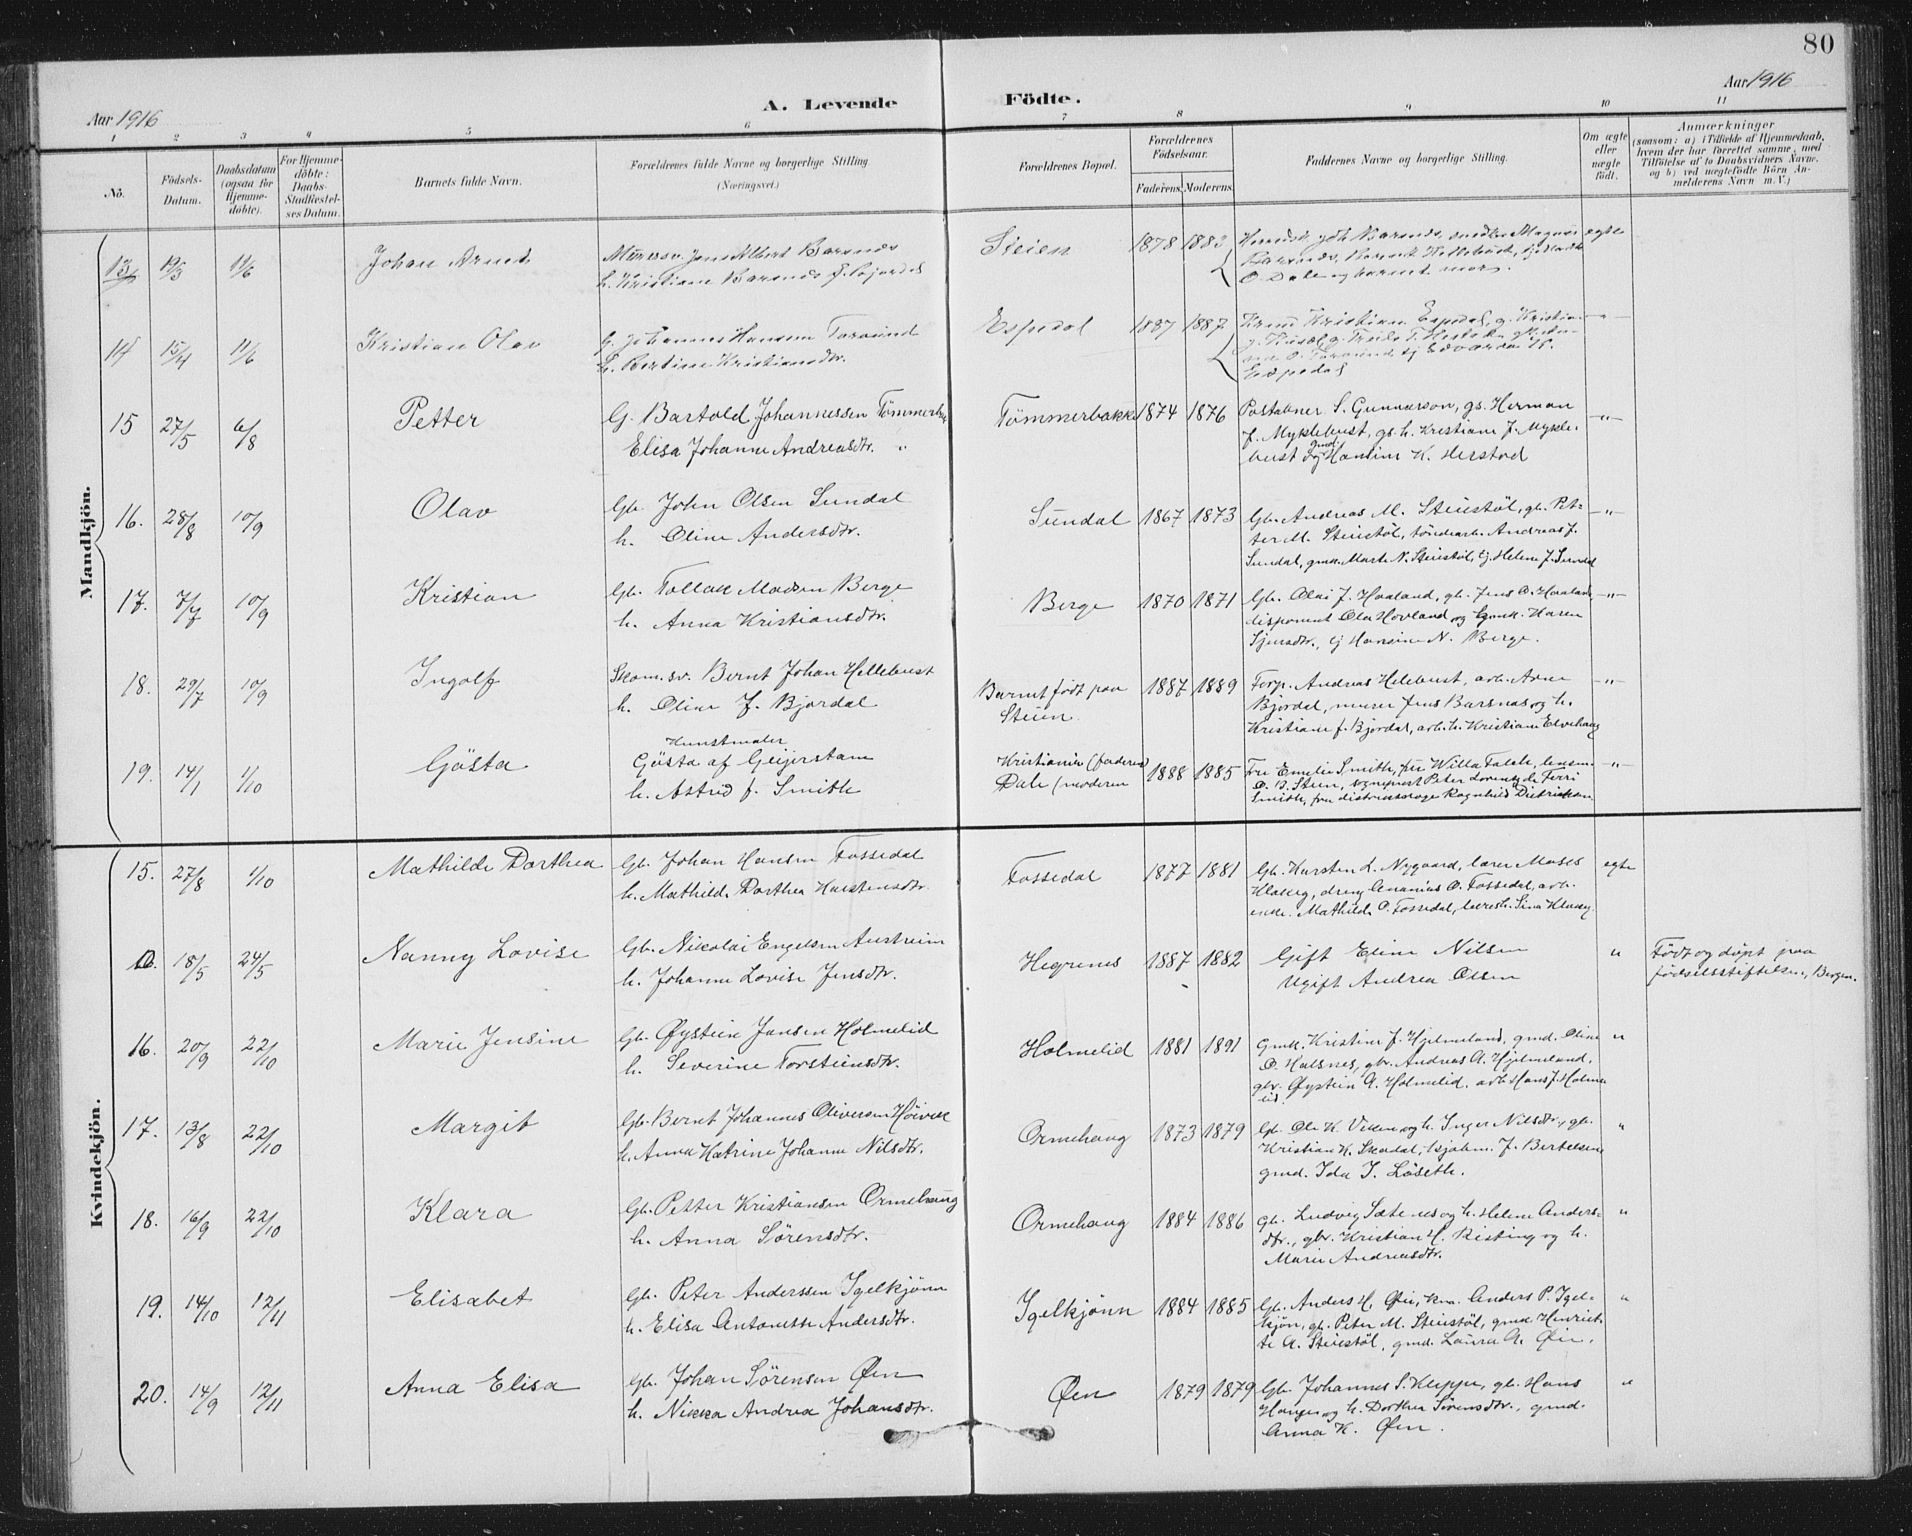 80
Aar 1916
Aar 1916
A. Levende Födte.
1 2 3 4 5 6 7 8 9 10 11
No.
Födsels-
Datum.
Daabsdatum
(ogsaa for
Hjemme-
döbte).
For Hjemme-
döbte:
Daabs-
Stadfæstel-
ses Datum.
Barnets fulde Navn.
Forældrenes fulde Navne og borgerlige Stilling.
(Næringsvei.)
Forældrenes Bopæl.
Forældrenes
Födselsaar.
Faderens. Moderens.
Faddernes Navne og borgerlige Stilling.
Om ægte
eller
uægte
födt.
Anmærkninger
(saasom: a) i Tilfælde af Hjemmedaab,
hvem der har forrettet samme, med
Tilföielse af to Daabsvidners Navne,
og b) ved uægtefödte Börn An-
melderens Navn m. V.)
Mandkjön.
13 19/3 11/6 Johan Arnt
Jens Albert Barsnes
h. Kristiane Barsnes f. Bjordal
Steien 1878 1883
Barsnes, Magnus
Barsnes,
O. Dale og barnets mor.
egte
14 15/4 11/6 Kristian Olav
G. Johannes Hansen
h. Bertine Kristiansdtr.
Espedal 1887 1887
Kristian Espedal, g. Kristian
Espedal
—"—
15 27/5 6/8 Petter
G. Bartold Johannessen
Elisa Johanne Andreasdtr. "
Tömmerbakke 1874 1876
Postabner S. Gunnarson, gs. Herman
J. Myklebust, gs. h. Kristiane J. Mykle-
bust og gmd Hansine K. Herstad
—"—
16. 28/8 10/9 Olav
Gb. John Olsen Sundal
h. Oline Andersdtr.
Sundal 1867 1873
Gb. Andreas M. Steiestöl, gb. Pet-
ter M. Steiestöl, töndearb. Andreas J.
Sundal, gmk. Marte N. Steiestöl, Ej Helene J. Sundal
—"—
17. 7/7 10/9 Kristian
Gb. Tollak Madsen Berge
h. Anna Kristiansdtr.
Berge 1870 1871
Gb. Olai J. Haaland, gb. Jens O. Haaland,
disponent Ola Hovland og gmk. Karen
ej Hansine N. Berge.
—"—
18. 29/7 10/9 Ingolf
Skom.sv. Bernt Johan Hellebust
h. Oline f. Bjordal
Barnet født paa
Steien.
1887 1889
Andreas Helebust, arb. Arne
Bjordal, murer Jens Barsnes og h.
Kristiane f. Bjordal, arb. h. Kristiane Elvehaug
—"—
19. 14/1 1/10 Gösta
Kunstmaler
Gösta af Geijerstam
h. Astrid f. Smith
Kristiania (faderen)
Dale (moderen
1888 1885
Fru Emelie Smith, frk Willa Falck, lensm.
O. B. Steen, Peter Lorentz de Ferri
Smith, fru distriktslæge Ragnhild Dietrichson
—"—
Kvindekjön.
15. 27/8 1/10 Mathilde Dorthea
Gb. Johan Hansen Fossedal
h. Mathilde Dorthea Karstensdtr.
Fossedal 1877 1881
Gb. Karsten L. Nygaard, lærer Moses
Klakeg, dreng Ananias O. Fossedal, arb.
enke. Mathilde O. Fossedal, lærerh. Sina Klakeg.
egte
18/5 24/5 Nanny Lovise
Gb. Nikolai Engelsen Austreim
h. Johanne Lovise Jensdtr.
Hegrenes 1887 1882
Gift Eline Nilsen
Ugift Andrea Olsen
"
Født og døpt paa
fødselsstiftelsen, Bergen.
16. 20/9 22/10 Marie Jensine
Gb. Øystein Jansen Holmelid
h. Severine Torsteinsdtr.
Holmelid 1881 1891
Gmk. Kristine J. Hjelmeland, gmd. Oline
O. Halsnes, gbr. Andreas A. Hjelmeland,
gbr. Øystein A. Holmelid, arb. Hans J. Holme
lid.
"
17. 13/8 22/10 Margit
Gb. Bernt Johannes Oliversen Høivik
h. Anna Katrine Johanne Nilsdtr.
Ormehaug 1873 1879
Gb. Ole K. Viken og h. Inger Nilsdtr., gb.
Kristian K. Skredal, J. Bertelsen
gmd. Ida I. Löseth.
"
18. 16/9 22/10 Klara
Gb. Petter Kristiansen Ormehaug
h. Anna Sörensdtr.
Ormehaug 1884 1886
gb. Ludvig Sætenes og h. Helene Anders-
dtr., gbr. Kristian H. Risting og h.
Marie Andreasdtr.
"
19. 14/10 12/11 Elisabet
Gb. Peter Anderssen Igelkjønn
h. Elisa Antonette Andersdtr.
Igelkjønn 1884 1885
Gb. Anders H. Øen, Anders P. Igel-
kjön, gb. Peter M. Steiestöl, gmk Henriet-
te A. Steiestöl, gmd. Laura A. Øen.
"
20. 14/9 12/11 Anna Elisa
Gb. Johan Sörensen Øen
h. Nikka Andrea Johansdtr.
Øen 1879 1879
Gb. Johannes S. Kleppe, gb. Hans
Hauge og h. Dorthea Sörensdtr., gmd.
Anna K. Øen.
"